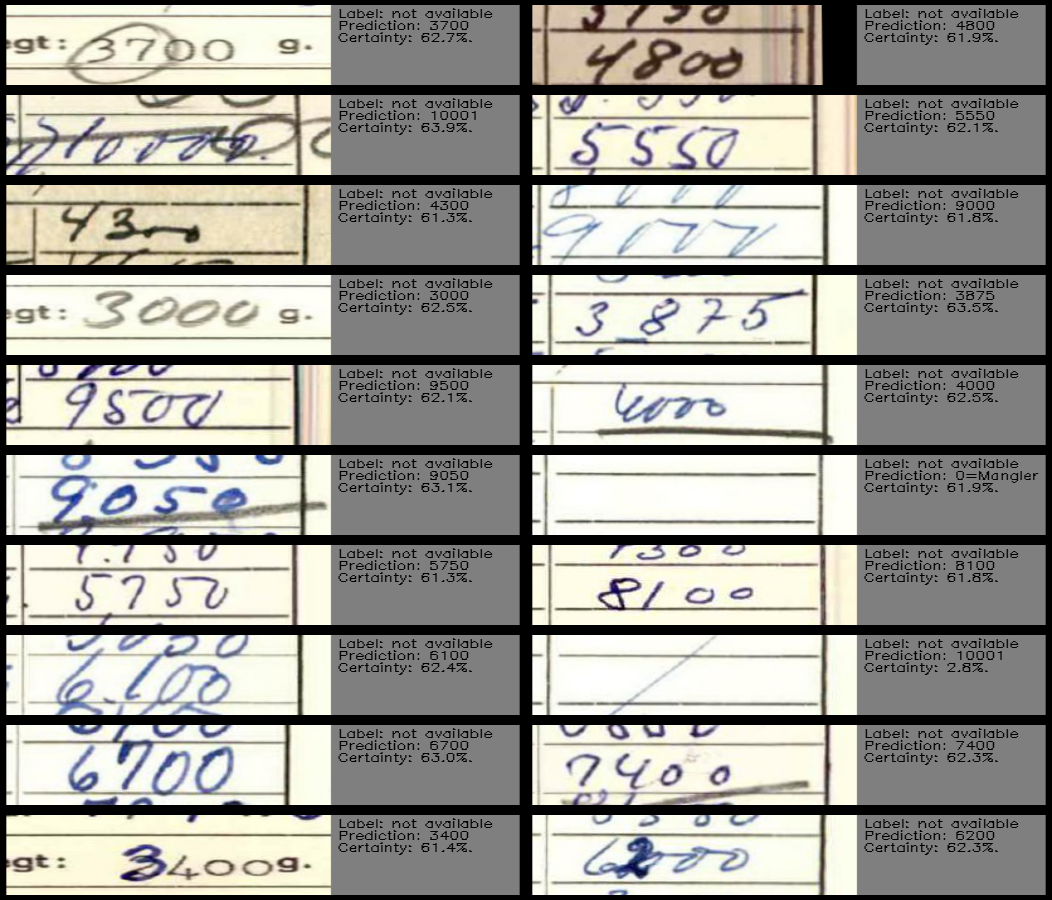 egt: 3700 g.
Label: not available
Prediction: 3700
Certainty: 62.7%.
4800
Label: not available
Prediction: 4800
Certainty: 61.9%.
10000
Label: not available
Prediction: 10001
Certainty: 63.9%.
5550
Label: not available
Prediction: 5550
Certainty: 62.1%.
43
Label: not available
Prediction: 4300
Certainty: 61.3%.
9000
Label: not available
Prediction: 9000
Certainty: 61.8%.
egt: 3000 g.
Label: not available
Prediction: 3000
Certainty: 62.5%.
3 875
Label: not available
Prediction: 3875
Certainty: 63.5%.
9500
Label: not available
Prediction: 9500
Certainty: 62.1%.
4000
Label: not available
Prediction: 4000
Certainty: 62.5%.
9.050
Label: not available
Prediction: 9050
Certainty: 63.1%.
Label: not available
Prediction: 0=Mangler
Certainty: 61.9%.
5750
Label: not available
Prediction: 5750
Certainty: 61.3%.
8100
Label: not available
Prediction: 8100
Certainty: 61.8%.
6.100
Label: not available
Prediction: 6100
Certainty: 62.4%.
Label: not available
Prediction: 10001
Certainty: 2.8%.
6700
Label: not available
Prediction: 6700
Certainty: 63.0%.
7400
Label: not available
Prediction: 7400
Certainty: 62.3%.
egt: 3400 g.
Label: not available
Prediction: 3400
Certainty: 61.4%.
Label: not available
Prediction: 6200
Certainty: 62.3%.